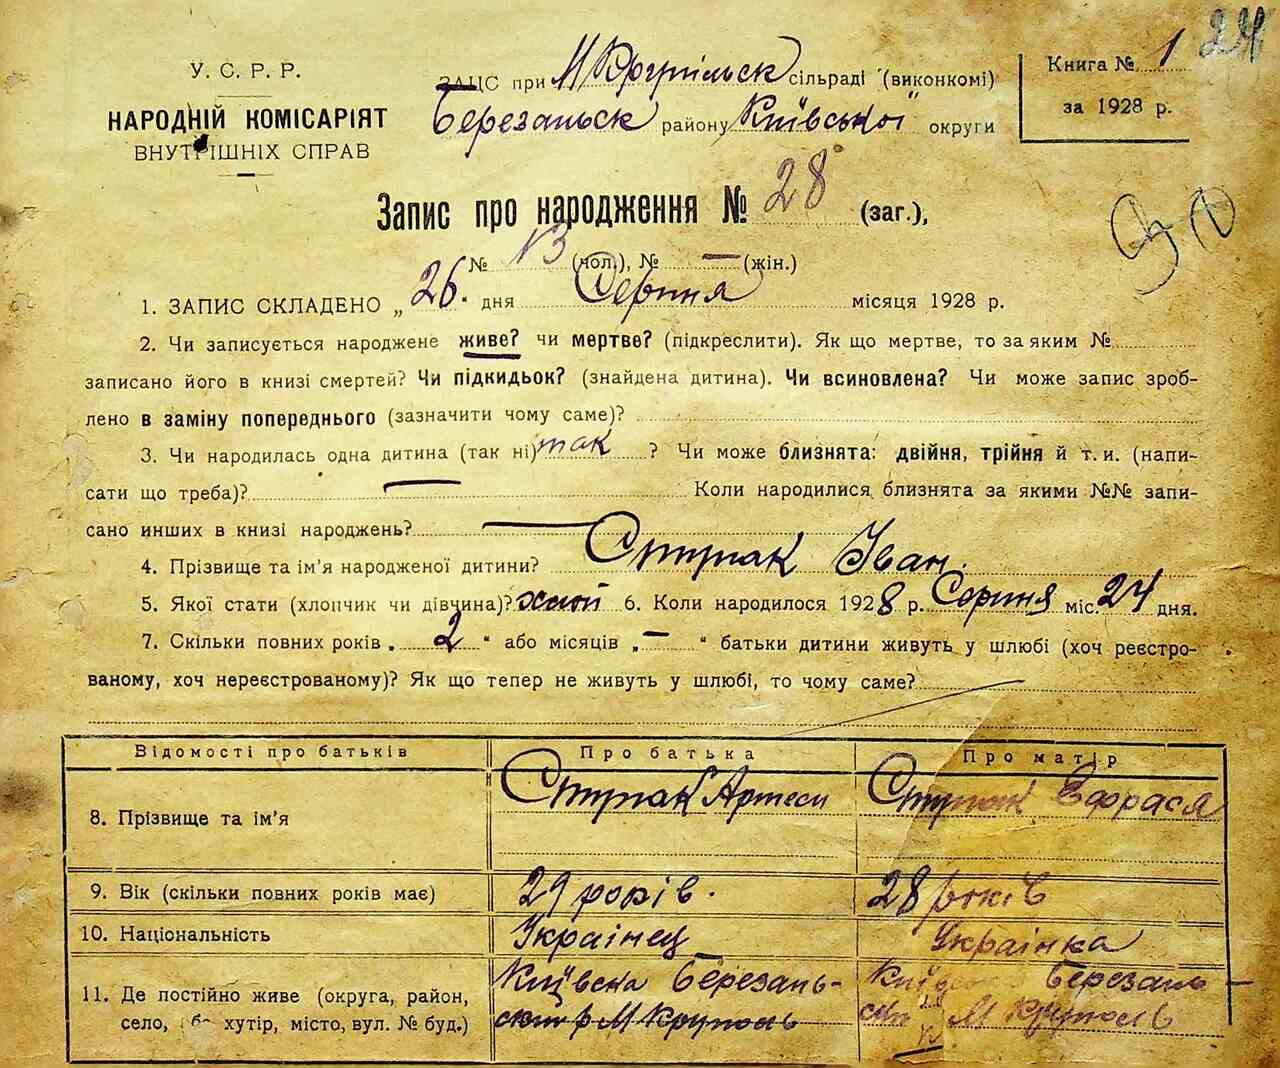 24
У. С. Р. Р.
НАРОДНІЙ КОМІСАРІЯТ
ВНУТРІШНІХ СПРАВ
ЗАЦС при М Крупільск сільраді (виконкомі)
Березанськ району Київської округи
Книга № 1
за 1928 р.
Запис про народження № 28 (заг.),
№ 13 (чол.), № — (жін.)
1. ЗАПИС СКЛАДЕНО „ 26 " дня Серпня місяця 1928 р.
2. Чи записується народжене живе? чи мертве? (підкреслити). Як що мертве, то за яким №
записано його в книзі смертей? Чи підкидьок? (знайдена дитина). Чи всиновлена? Чи може запис зроб-
лено в заміну попереднього (зазначити чому саме)?
3. Чи народилась одна дитина (так ні) так ? Чи може близнята: двійня, трійня й т. и. (напи-
сати що треба)? — Коли народилися близнята за якими №№ запи-
сано инших в книзі народжень? —
4. Прізвище та ім'я народженої дитини? Ступак Іван.
5. Якої стати (хлопчик чи дівчина)? 6. Коли народилося 1928 р. Серпня міс. 24 дня.
7. Скільки повних років „ 2 " або місяців „ — " батьки дитини живуть у шлюбі (хоч реєстро-
ваному, хоч нереєстрованому)? Як що тепер не живуть у шлюбі, то чому саме?
Відомості про батьків Про батька Про матір
8. Прізвище та ім'я Ступак Артем Ступак Ефрася
9. Вік (скільки повних років має) 29 років. 28 років
10. Національність Українец Українка
11. Де постійно живе (округа, район,
село, або хутір, місто, вул. № буд.)
Київска Березань-
М Круполь
Березань-
М Круполь